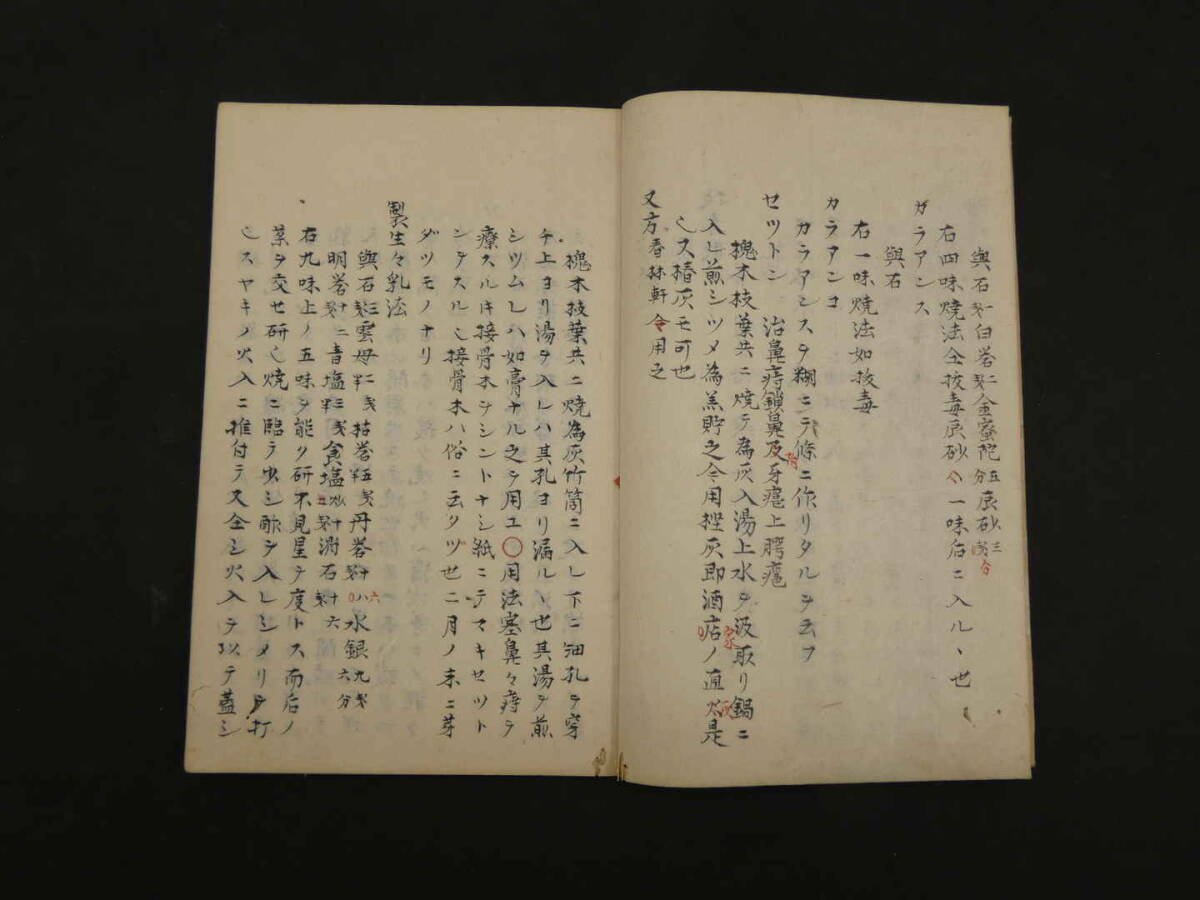 礜石 白礬 金蜜陀 五分 辰砂 三分
右四味焼法全抜毒辰砂一味后ニ入ル丶也
ガラアンス
礜石
右一味焼法如抜毒
カラアンコ
カラアンスヲ糊ニテ條ニ作リタルヲ云フ
セツトン 治鼻痔鎖鼻及牙疳上腭瘡
槐木枝葉共ニ焼テ為灰入湯上水ヲ汲取リ鍋ニ
入レ煎シツメ為羔貯之今用挫灰即酒店ノ直灰是
也又椿灰モ可也
又方春林軒今用之
槐木枝葉共ニ焼為灰竹筒ニ入レ下ニ細孔ヲ穿
チ上ヨリ湯ヲ入レハ其孔ヨリ漏ル丶也其湯ヲ煎
シツムレハ如膏ナル之ヲ用ユ〇用法塞鼻々痔ヲ
療スル片接骨木ヲシントナシ紙ニテマキセツト
ンヲスル也接骨木ハ俗ニ云タヅ也二月ノ末ニ芽
ダツモノナリ
製生々乳法
礜石 雲母 枯礬 丹礬 水銀 九 六分
明礬 十二 青塩 食塩 消石 十六
右九味上ノ五味ヲ能ク研不見星ヲ度トス而后ノ
薬ヲ交セ研也焼ニ臨テ少シ酢ヲ入レシメリヲ打
也スヤキノ火入ニ推付テ又全シ火入ヲ以テ蓋シ